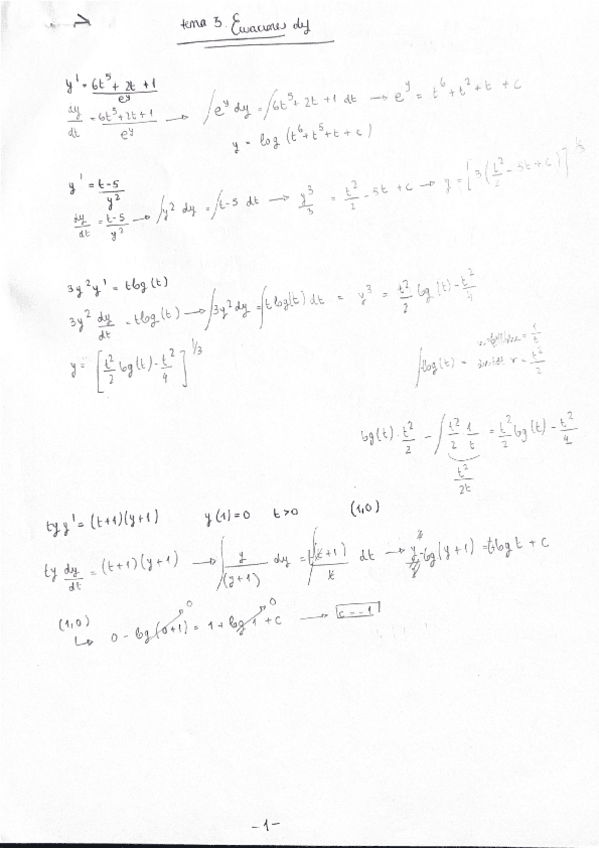 tema 3. Ecuaciones dif
y' = 6t⁵ + 2t + 1 / e^y
dy/dt = 6t⁵ + 2t + 1 / e^y → ∫ e^y dy = ∫ 6t⁵ + 2t + 1 dt → e^y = t⁶ + t² + t + c
y = log (t⁶ + t⁵ + t + c)
y' = t-5 / y²
dy/dt = t-5 / y² → ∫ y² dy = ∫ t-5 dt → y³/3 = t²/2 - 5t + c → y = [3(t²/2 - 5t + c)]^1/3
3y² y' = t log(t)
3y² dy/dt = t log(t) → ∫ 3y² dy = ∫ t log(t) dt = y³ = t²/2 log(t) - t²/4
y = [t²/2 log(t) - t²/4]^1/3
∫ t log(t) =
v = t²/2
log(t) · t²/2 - ∫ t²/2 1/t = t²/2 log(t) - t²/4
t²/2t
tyy' = (t+1)(y+1) y(1)=0 t>0 (1,0)
ty dy/dt = (t+1)(y+1) → ∫ y/(y+1) dy = ∫ (t+1)/t dt → y - log(y+1) = t+log t + c
(1,0)
↳ 0 - log(0+1) = 1 + log 1 + c → c = -1
-1-